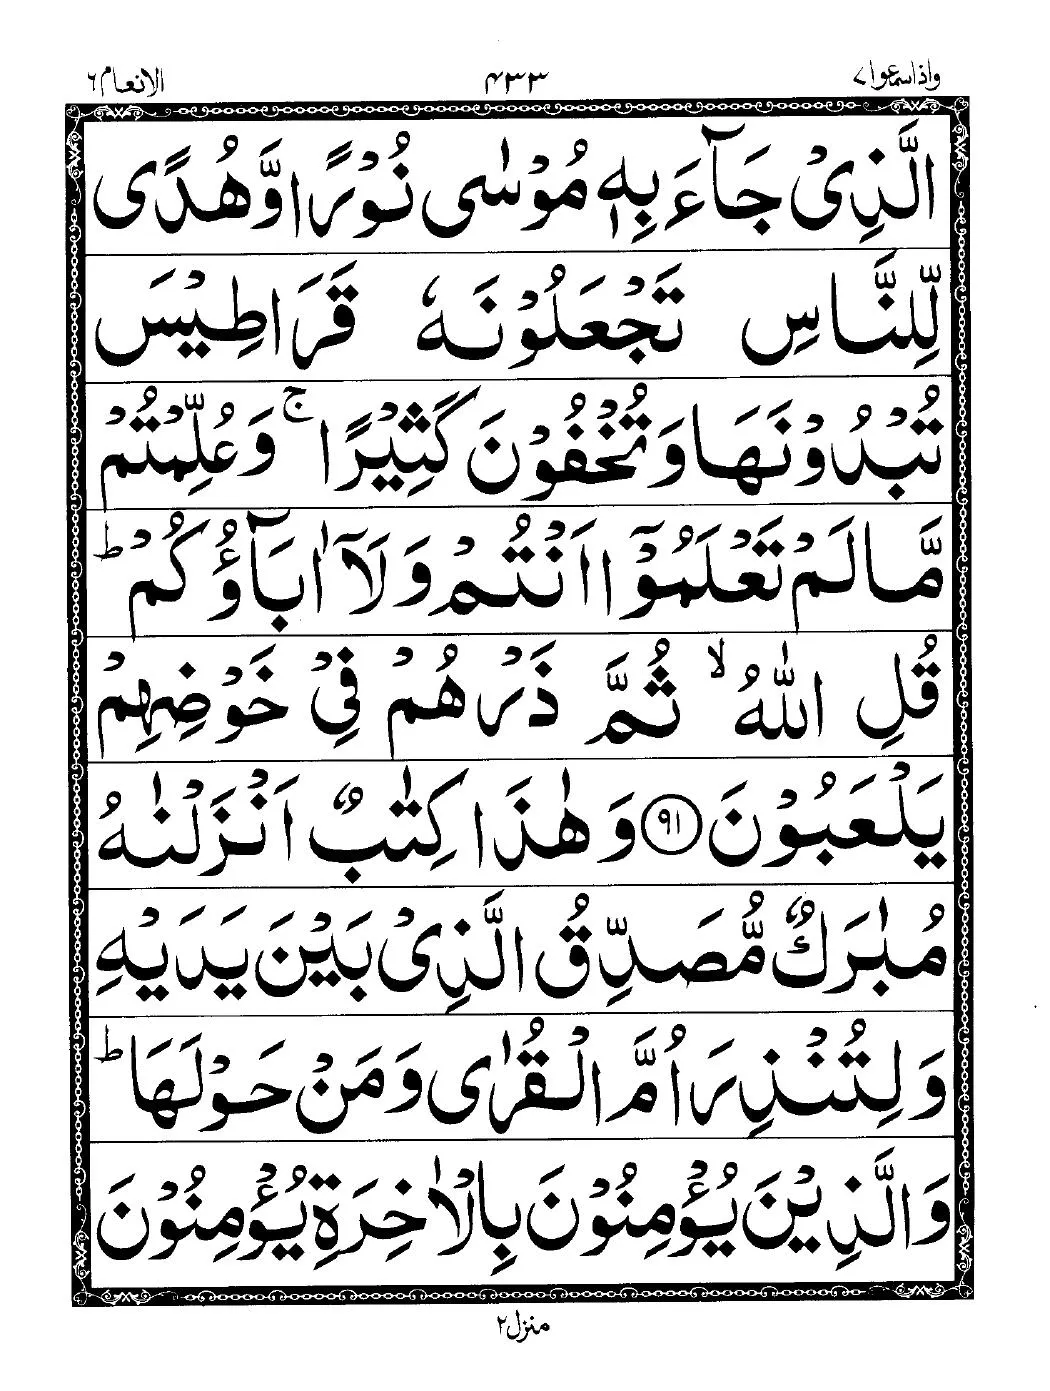 واذاسمعوا٧ ۴۳۳ الانعام٦
الَّذِیْ جَآءَ بِهٖ مُوْسٰی نُوْرًا وَّهُدًی
لِّلنَّاسِ تَجْعَلُوْنَهٗ قَرَاطِیْسَ
تُبْدُوْنَهَا وَتُخْفُوْنَ كَثِیْرًا ۚ وَعُلِّمْتُمْ
مَّا لَمْ تَعْلَمُوْۤا اَنْتُمْ وَلَاۤ اٰبَآؤُكُمْ ؕ
قُلِ اللّٰهُ ۙ ثُمَّ ذَرْهُمْ فِیْ خَوْضِهِمْ
یَلْعَبُوْنَ ﴿۹۱﴾ وَهٰذَا كِتٰبٌ اَنْزَلْنٰهُ
مُبٰرَكٌ مُّصَدِّقُ الَّذِیْ بَیْنَ یَدَیْهِ
وَلِتُنْذِرَ اُمَّ الْقُرٰی وَمَنْ حَوْلَهَا ؕ
وَالَّذِیْنَ یُؤْمِنُوْنَ بِالْاٰخِرَةِ یُؤْمِنُوْنَ
منزل۲